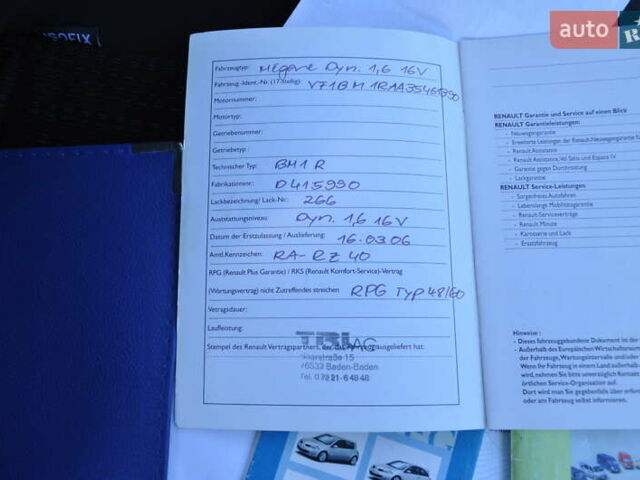 ISOFIX
auto
Fahrzeugtyp: Mégane Dyn. 1,6 16V
Fahrzeug-Ident.-Nr. (17-stellig):
Motornummer:
Motortyp:
Getriebenummer:
Getriebetyp:
Technischer Typ: BM1R
Fabrikationsnr.: D415990
Lackbezeichnung/ Lack-Nr.: 266
Ausstattungsniveau: Dyn. 1,6 16V
Datum der Erstzulassung / Auslieferung: 16.03.06
Amtl. Kennzeichen: RA-RZ 40
RPG (Renault Plus Garantie) / RKS (Renault Komfort-Service)-Vertrag
(Wartungsvertrag) nicht Zutreffendes streichen RPG Typ 48/60
Vertragsdauer:
Laufleistung:
Stempel des Renault Vertragspartners, der das ausgeliefert hat:
AG
76532 Baden-Baden
RENAULT Garantie und Service auf einen Blick
RENAULT Garantieleistungen:
- Neuwagengarantie
- Erweiterte Leistungen der Renault-Neuwagengarantie
- Renault Assistance
- Renault Assistance, Vel Satis und Espace IV
- Garantie gegen Durchrostung
- Lackgarantie
RENAULT Service-Leistungen
- Sorgenfreies Autofahren
- Lebenslange Mobilitätsgarantie
- Renault-Serviceverträge
- Renault Minute
- Karosserie und Lack
- Ersatzfahrzeug
Hinweise :
- Dieses fahrzeuggebundene Dokument ist der
- Außerhalb des Europäischen Wirtschaftsraum
der Fahrzeuge, Wartungsintervalle und/oder
Wenn Ihr Fahrzeug in einem Land außerhalb
wird, nehmen Sie bitte unverzüglich Kontakt
örtlichen Service-Organisation auf.
Dort wird man Sie gegebenfalls über erford
oder am Fahrzeug selbst informieren.